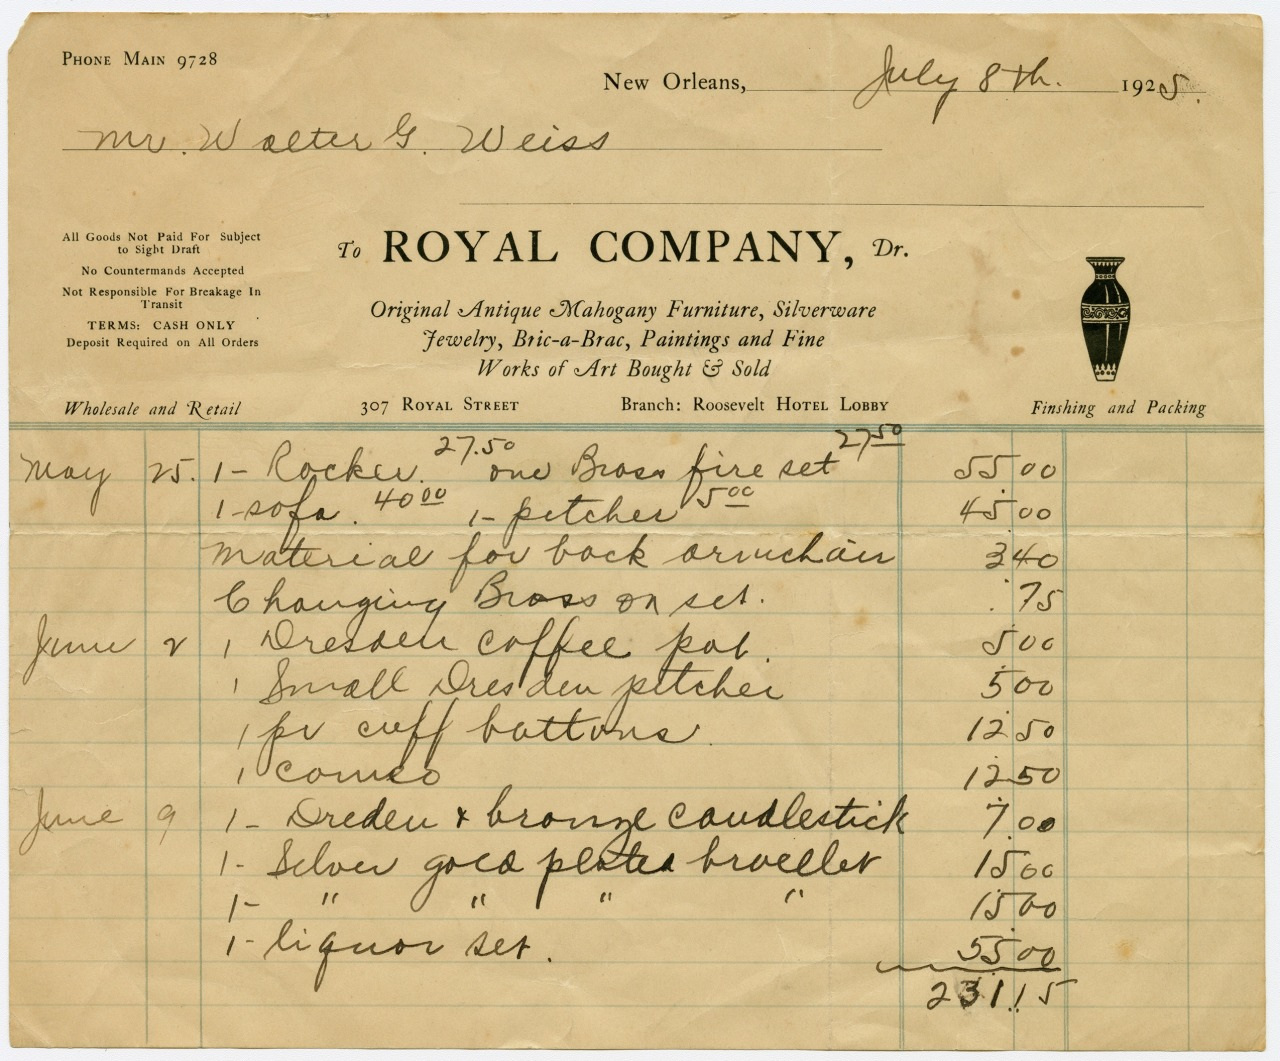 Phone Main 9728
New Orleans, July 8th. 1925.
Mr. Walter G. Weiss
All Goods Not Paid For Subject
to Sight Draft
No Countermands Accepted
Not Responsible For Breakage In
Transit
TERMS: CASH ONLY
Deposit Required on All Orders
Wholesale and Retail
To ROYAL COMPANY, Dr.
Original Antique Mahogany Furniture, Silverware
Jewelry, Bric-a-Brac, Paintings and Fine
Works of Art Bought & Sold
307 Royal Street Branch: Roosevelt Hotel Lobby
Finshing and Packing
May 25. 1- Rocker. 27.50 one Brass fire set 27 50 55 00
1- sofa. 40 00 1- pitcher 5 00 45 00
Material for back armchair 3 40
Changing Brass on set. .75
June 2 1 Dresden coffee pot. 5 00
1 Small Dresden pitcher 5 00
1 pr cuff buttons 12 50
1 cameo 12 50
June 9 1- Dreden & bronze candlestick 7.00
1- Silver gold plated bracellet 15 00
1- " " " " 15 00
1- liquor set. 55 00
231.15